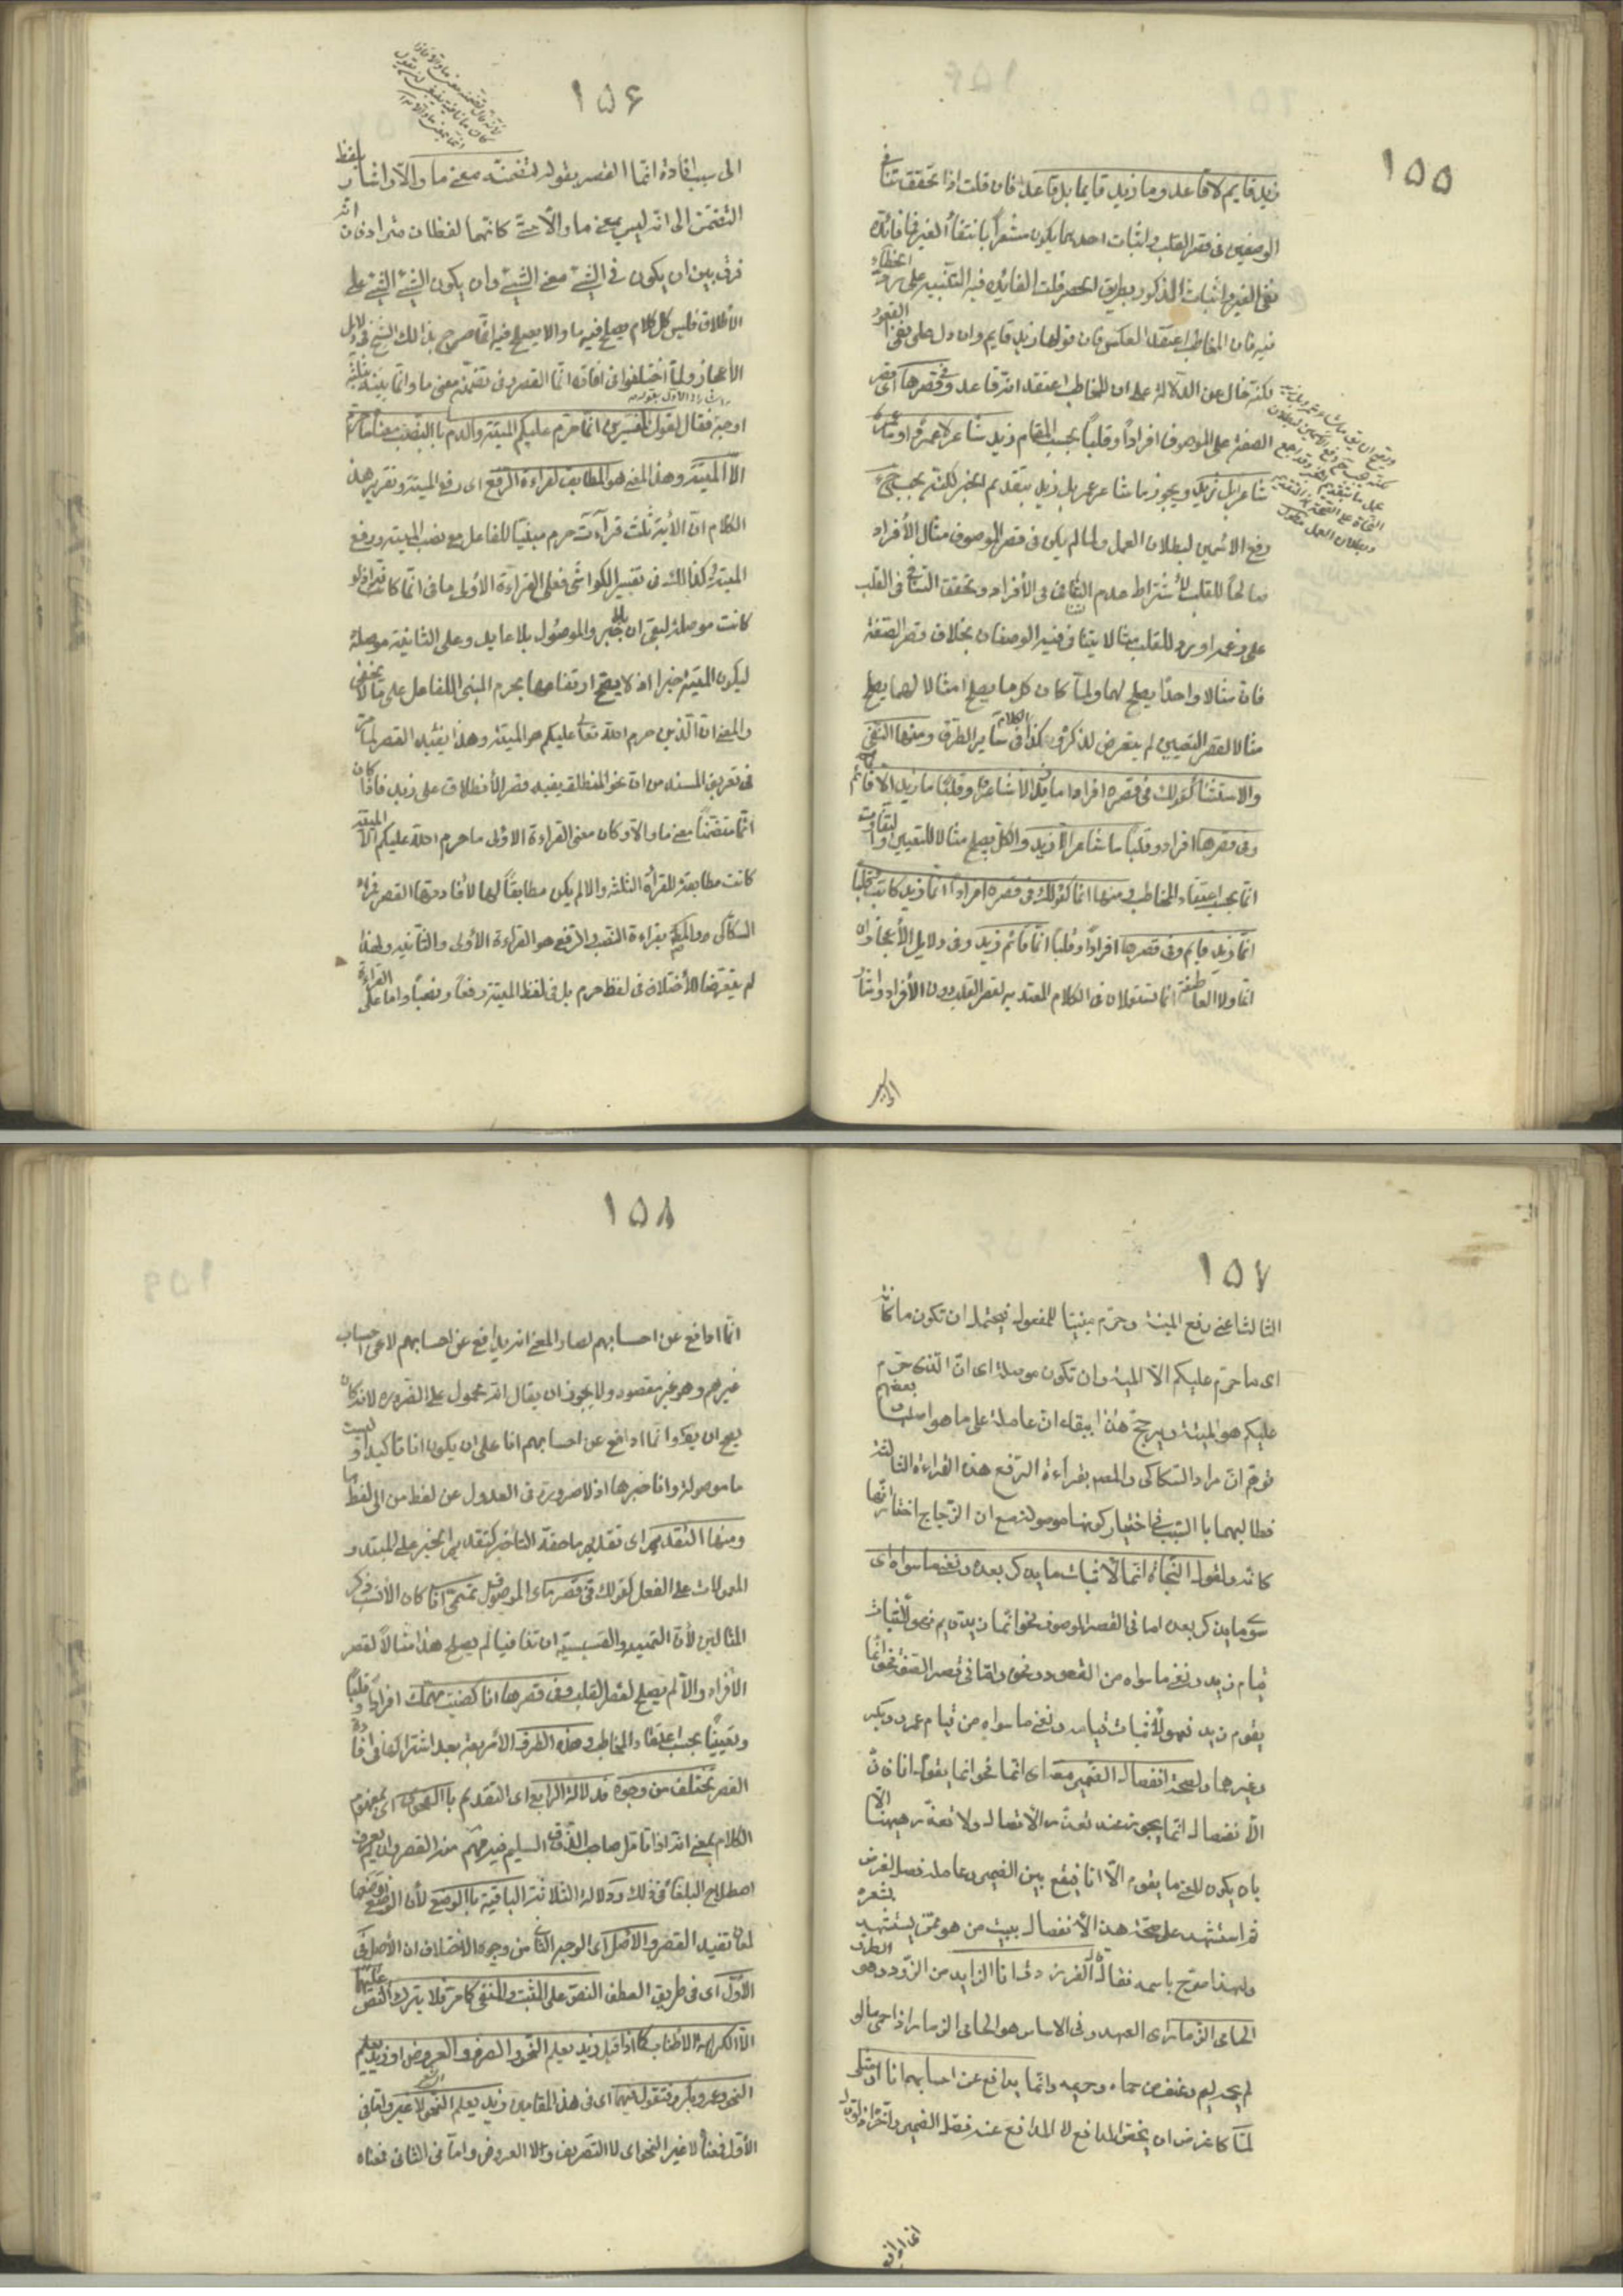 ١٥٥
زيد قايم لا قاعد وما زيد قايما بل قاعد فان قلت اذا تحقق تنافى
الوصفين فى قصر القلب فاثبات احدهما يكون مشعراً بانتفاء الغير فما فائدة
نفى الغير واثبات المذكور بطريق الحصر قلت الفائدة فيه التنبيه على رد الخطاء
فيه فان المخاطب اعتقد العكس فان قولنا زيد قايم وان دل على نفى القعود
لكنه خال عن الدلالة على ان المخاطب اعتقد انه قاعد وفى قصرها اى قصر
الصفة على الموصوف افراداً وقلباً بحسب المقام زيد شاعر لا عمرو او ما عمرو
شاعراً بل زيد ويجوز ما شاعر عمرو بل زيد بتقديم الخبر لكنه يجب ح
رفع الاسمين لبطلان العمل ولما لم يكن فى قصر الموصوف مثال الأفراد
صالحاً للقلب لأشتراط عدم التنافى فى الأفراد وتحقق التنافى فى القلب
على زعمه اورد للقلب مثالا يتنافى فيه الوصفان بخلاف قصر الصفة
فان مثالا واحدا يصلح لهما ولما كان كل ما يصلح مثالا لهما يصلح
مثالا لقصر التعيين لم يتعرض لذكره وهكذا فى ساير الطرق ومنها النفى
والاستثناء كقولك فى قصره افرادا ما زيد الا شاعر وقلبا ما زيد الا قائم
وفى قصرها افراد وقلبا ما شاعر الا زيد والكل يصلح مثالا للتعيين والتفاوت
انما بحسب اعتقاد المخاطب ومنها انما كقولك فى قصره افراداً انما زيد كاتب وقلبا
انما زيد قايم وفى قصرها افراداً وقلبا انما قائم زيد وفى دلايل الأعجاز ان
انما ولا العاطفة انما تستعملان فى الكلام المعتد به لقصر القلب دون الأفراد واشار
١٥۶
الى سبب افادة انما القصر بقوله لتضمنه معنى ما والا واشار بلفظ
التضمن الى انه ليس بمعنى ما والا حتى كانهما لفظان مترادفان انه
فرق بين ان يكون فى الشئ معنى الشئ وان يكون الشئ الشئ على
الأطلاق فليس كل كلام يصلح فيه ما والا يصلح فيه انما صرح بذالك الشيخ فى دلايل
الأعجاز ولما أختلفوا فى افادة انما القصر وفى تضمنه معنى ما والا بينه بثلثة
اوجه فقال لقول المفسرين انما حرم عليكم الميتة والدم بالنصب معناه ما حرم
الا الميتة وهذا المعنى هو المطابق لقراءة الرفع اى رفع الميتة وتقرير هذا
الكلام ان الأية ثلث قراآت حرم مبنياً للفاعل مع نصب الميتة ورفع
الميتة كذالك فى تفسير الكواشى فعلى القراءة الأولى ما فى انما كافة اذ لو
كانت موصلة لبقى ان بلا خبر والموصول بلا عايد وعلى الثانية موصلة
ليكون الميتة خبرا اذ لا يصح ارتفاعها بحرم المبنى للفاعل على ما لا يخفى
والمعنى ان الذين حرم الله تعالى عليكم هو الميتة وهذا يفيد القصر لما مر
فى تعريف المسند من ان نحو المنطلق زيد يفيد قصر الأنطلاق على زيد فاذا كان
انما متضمنا معنى ما والا وكان معنى القراءة الاولى ما حرم الله عليكم الا الميتة
كانت مطابقة للقرأة الثانية والا لم يكن مطابقاً لها لأفادتها القصر فمراد
السكاكى والمص بقراءة النصب والرفع هو القراءة الأولى والثانيه ولهذا
لم يتعرضا للأختلاف فى لفظ حرم بل فى لفظ الميتة رفعاً ونصباً واما على القراءة
١٥٧
الثالثة اعنى رفع الميتة وحرم مبنيا للمفعول فيحتمل ان تكون ما كافة
اى ما حرم عليكم الا الميتة وان تكون موصلة اى ان الذى حرم
عليكم هو الميتة ويرجح هذا ببقاء ان عاملة على ما هو اصلها وبعضهم
توهم ان مراد السكاكى والمص بقراءة الرفع هذه القراءة الثالثة
فطالبهما با السبب فى اختيار كونها موصولة مع ان الزجاج اختار انها
كافه ولقول النحاة انما لأثبات ما يذكر بعده ونفى ما سواه اى
سوى ما يذكر بعده اما فى القصر الموصوف نحو انما زيد قايم فهو لأثبات
قيام زيد ونفى ما سواه من القعود ونحوه واما فى قصر الصفة نحو انما
يقوم زيد فهو لأثبات قيامه ونفى ما سواه من قيام عمرو وبكر
وغيرهما ولصحة انفصال الضمير معه اى انما نحو انما يقول انا فان
الأنفصال انما يجوز عند تعذر الأتصال ولا تعذر هيهنا الا
بان يكون المعنى ما يقوم الا انا فيقع بين الضمير وعامله فصل لغرض
ثم استشهد على صحة هذا الأنفصال ببيت من هو ممن يستشهد بشعره
ولهذا صرح باسمه فقال الفرزدق انا الذايد من الذود وهو الطرد
الحامى الذمار اى العهد وفى الاساس هو الحامى الذمار اذا حمى ما لو
لم يحمه ليم وعنف من حماه وحريمه وانما يدافع عن احسابهم انا او مثلى
لما كا غرض ان يخص المدافع لا المدافع عنه فصل الضمير واخره اذ لو قال
١٥٨
انما ادافع عن احسابهم لصار المعنى انه يدافع عن احسابهم لا عن احساب
غيرهم وهو غير مقصود ولا يجوز ان يقال انه محمول على الضرورة لانه كان
يصح ان يقول انما ادافع عن احسابهم انا على ان يكون انا تأكيدا وليست
ما موصولة وانا خبرها اذ لا ضرورة فى العدول عن لفظ من الى لفظ ما
ومنها التقديم اى تقديم ما حقه التاخير كتقديم الخبر على المبتدء و
المعمولات على الفعل كقولك فى قصره اى الموصوف تميمى انا كان الأنسب ذكر
المثالين لأن التميمية والقيسية ان تنافيا لم يصلح هذا مثالاً لقصر
الأفراد والا لم يصلح لقصر القلب وفى قصرها انا كفيت مهمك افرادا وقلبا
وتعيينا بحسب اعتقاد المخاطب وهذه الطرق الأربعة بعد اشتراكها فى افادة
القصر تختلف من وجوه فدلالة الرابع اى التقديم با الفحوى اى بمفهوم
الكلام بمعنى انه اذا تامل صاحب الذوق السليم فيه فهم منه القصر وان لم يعرف
اصطلاح البلغاء فى ذلك ودلالة الثلاثة الباقية با الوضع لأن الواضع وضعها
لمعان تفيد القصر والاصل اى الوجه الثانى من وجوه الاختلاف ان الأصل فى
الأول اى فى طريق العطف النص على المثبت والمنفى كما مر فلا يترك النص عليهما
الا لكراهة الأطناب كما اذا قيل زيد يعلم النحو والصرف والعروض او زيد يعلم
النحو وعمرو وبكر فتقول فيهما اى فى هذا المقامين زيد يعلم النحو لا غير واما فى
الأول فمعناه لا غير النحو اى لا التصريف ولا العروض واما فى الثانى فمعناه